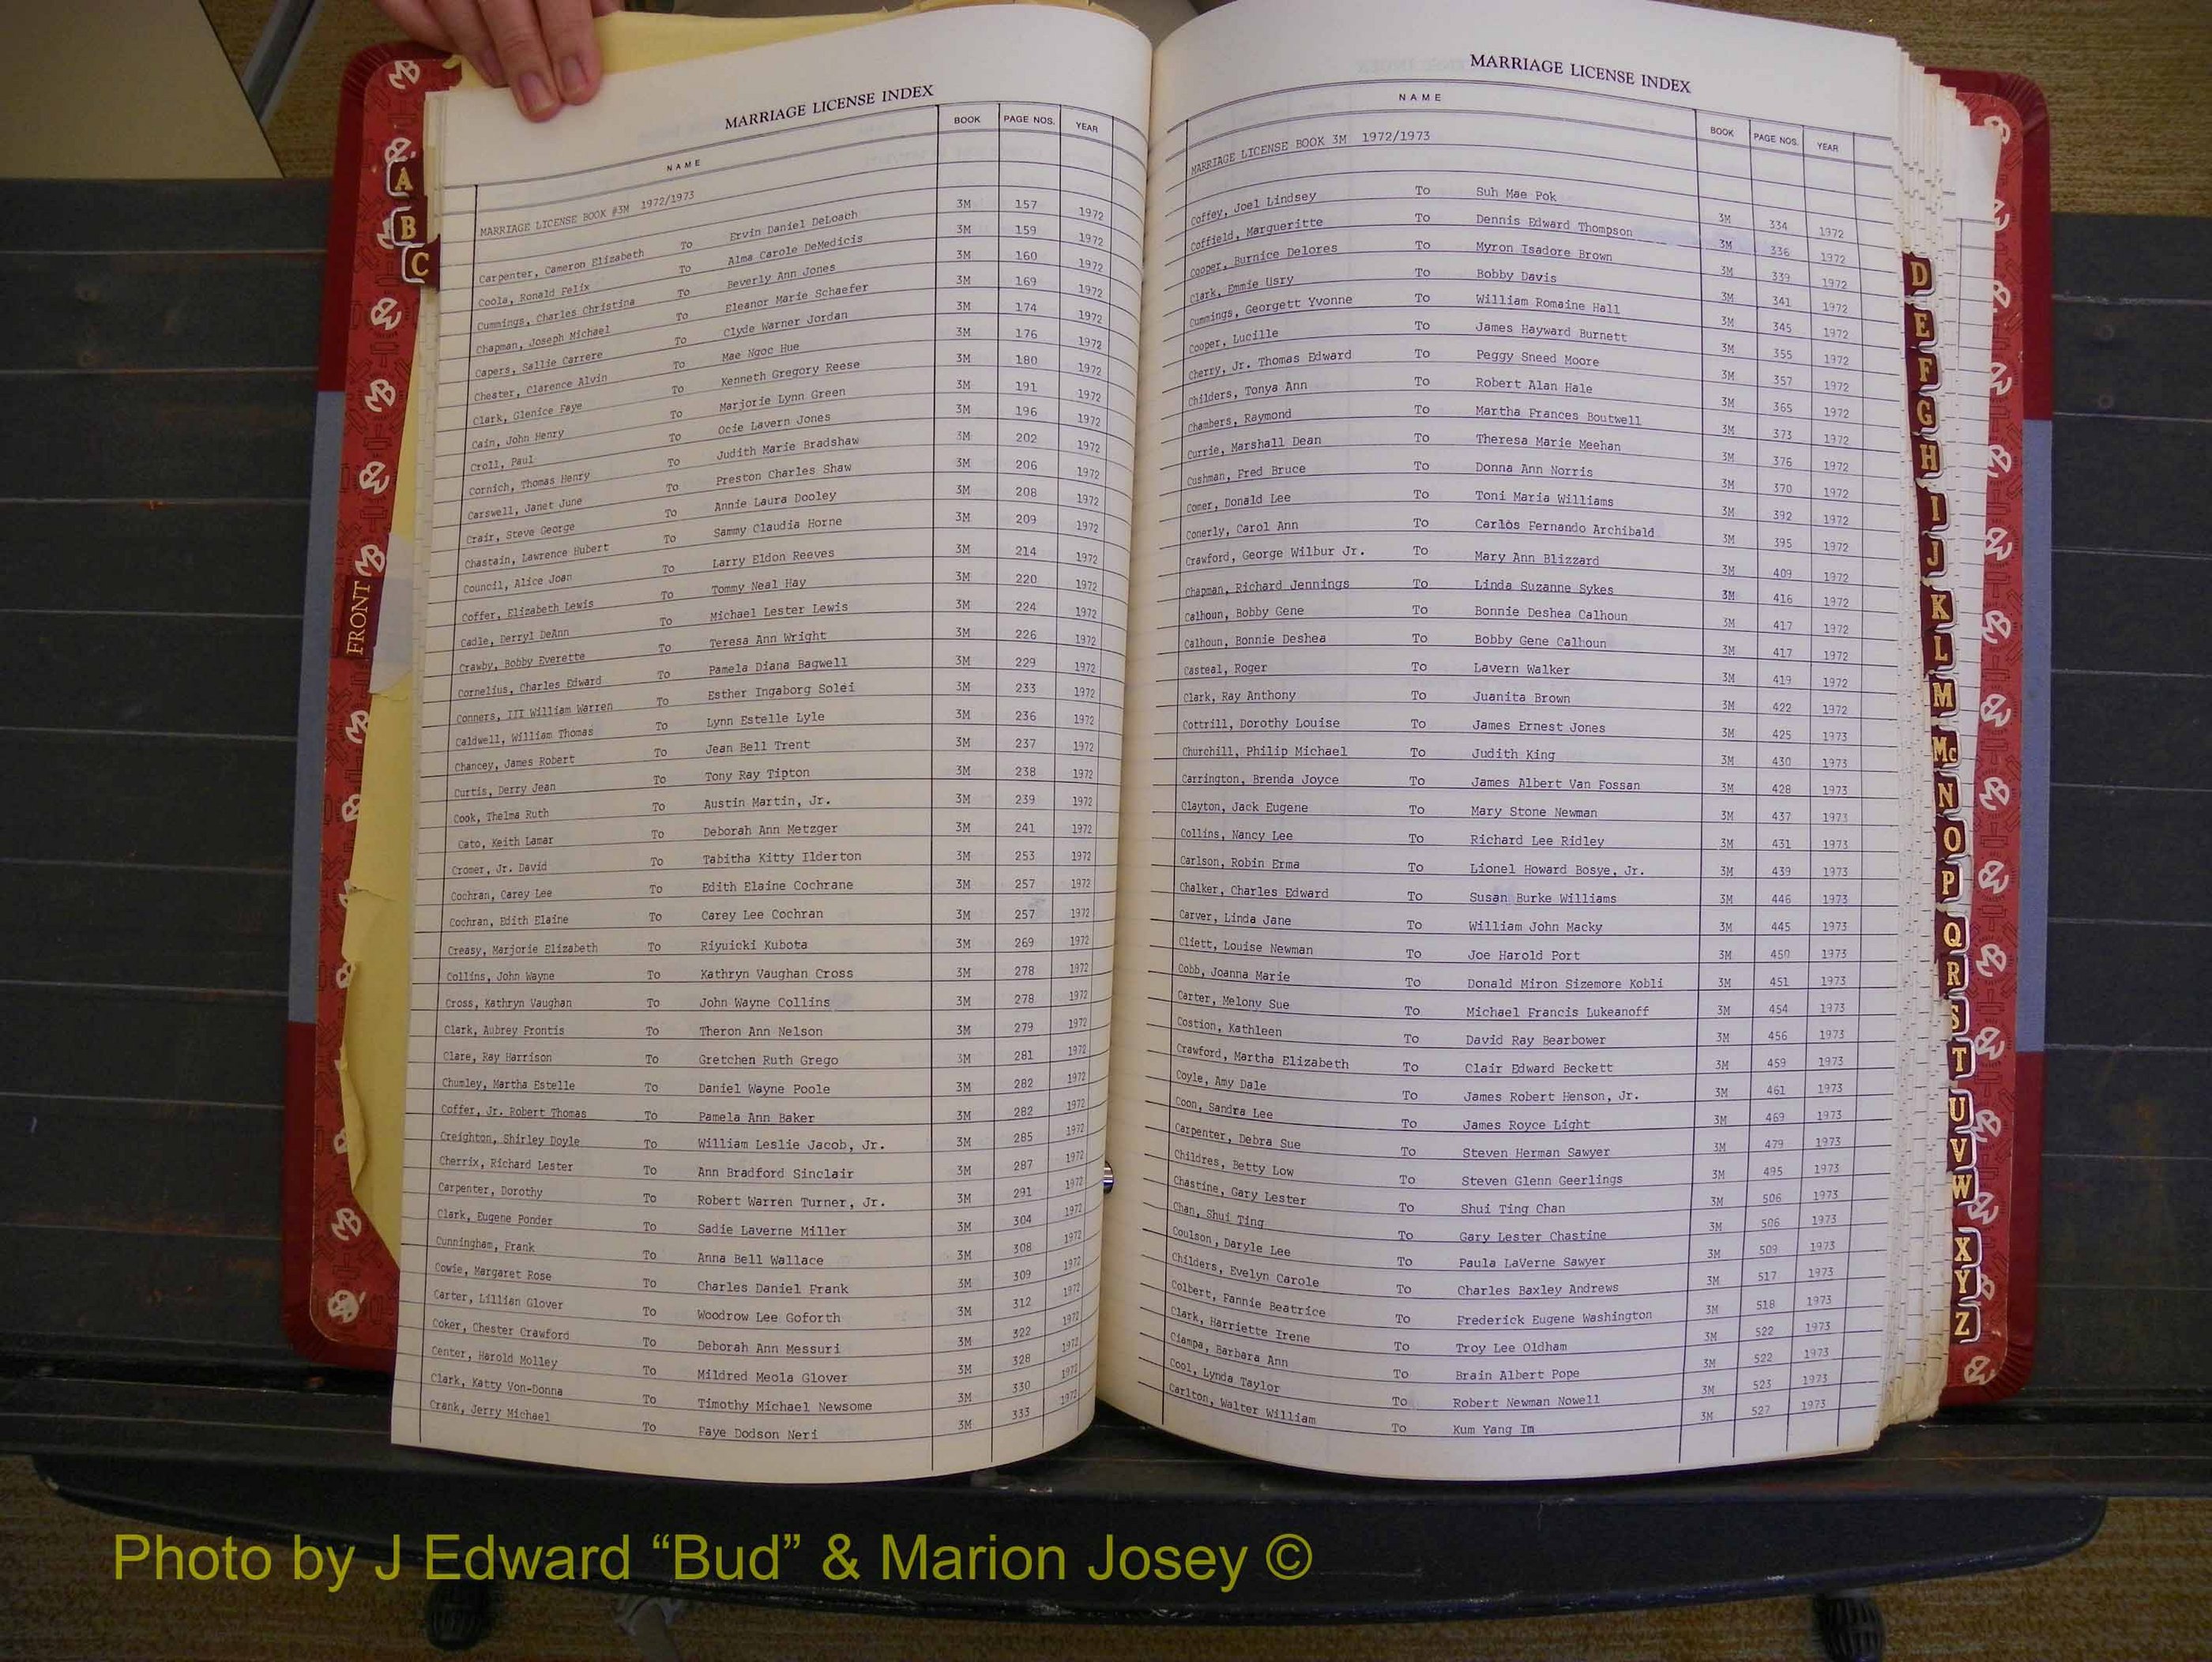 MARRIAGE LICENSE INDEX
NAME BOOK PAGE NOS. YEAR
MARRIAGE LICENSE BOOK #3M 1972/1973
Carpenter, Cameron Elizabeth To Ervin Daniel DeLoach 3M 157 1972
Coola, Ronald Felix To Alma Carole DeMedicis 3M 159 1972
Cummings, Charles Christina To Beverly Ann Jones 3M 160 1972
Chapman, Joseph Michael To Eleanor Marie Schaefer 3M 169 1972
Capers, Sallie Carrere To Clyde Warner Jordan 3M 174 1972
Chester, Clarence Alvin To Mae Ngoc Hue 3M 176 1972
Clark, Glenice Faye To Kenneth Gregory Reese 3M 180 1972
Cain, John Henry To Marjorie Lynn Green 3M 191 1972
Croll, Paul To Ocie Lavern Jones 3M 196 1972
Cornich, Thomas Henry To Judith Marie Bradshaw 3M 202 1972
Carswell, Janet June To Preston Charles Shaw 3M 206 1972
Crair, Steve George To Annie Laura Dooley 3M 208 1972
Chastain, Lawrence Hubert To Sammy Claudia Horne 3M 209 1972
Council, Alice Joan To Larry Eldon Reeves 3M 214 1972
Coffer, Elizabeth Lewis To Tommy Neal Hay 3M 220 1972
Cadle, Derryl DeAnn To Michael Lester Lewis 3M 224 1972
Crawby, Bobby Everette To Teresa Ann Wright 3M 226 1972
Cornelius, Charles Edward To Pamela Diana Bagwell 3M 229 1972
Conners, III William Warren To Esther Ingaborg Solei 3M 233 1972
Caldwell, William Thomas To Lynn Estelle Lyle 3M 236 1972
Chancey, James Robert To Jean Bell Trent 3M 237 1972
Curtis, Derry Jean To Tony Ray Tipton 3M 238 1972
Cook, Thelma Ruth To Austin Martin, Jr. 3M 239 1972
Cato, Keith Lamar To Deborah Ann Metzger 3M 241 1972
Cromer, Jr. David To Tabitha Kitty Ilderton 3M 253 1972
Cochran, Carey Lee To Edith Elaine Cochrane 3M 257 1972
Cochran, Edith Elaine To Carey Lee Cochran 3M 257 1972
Creasy, Marjorie Elizabeth To Riyuicki Kubota 3M 269 1972
Collins, John Wayne To Kathryn Vaughan Cross 3M 278 1972
Cross, Kathryn Vaughan To John Wayne Collins 3M 278 1972
Clark, Aubrey Frontis To Theron Ann Nelson 3M 279 1972
Clare, Ray Harrison To Gretchen Ruth Grego 3M 281 1972
Chumley, Martha Estelle To Daniel Wayne Poole 3M 282 1972
Coffer, Jr. Robert Thomas To Pamela Ann Baker 3M 282 1972
Creighton, Shirley Doyle To William Leslie Jacob, Jr. 3M 285 1972
Cherrix, Richard Lester To Ann Bradford Sinclair 3M 287 1972
Carpenter, Dorothy To Robert Warren Turner, Jr. 3M 291 1972
Clark, Eugene Ponder To Sadie Laverne Miller 3M 304 1972
Cunningham, Frank To Anna Bell Wallace 3M 308 1972
Cowie, Margaret Rose To Charles Daniel Frank 3M 309 1972
Carter, Lillian Glover To Woodrow Lee Goforth 3M 312 1972
Coker, Chester Crawford To Deborah Ann Messuri 3M 322 1972
Center, Harold Molley To Mildred Meola Glover 3M 328 1972
Clark, Katty Von-Donna To Timothy Michael Newsome 3M 330 1972
Crank, Jerry Michael To Faye Dodson Neri 3M 333 1972
MARRIAGE LICENSE INDEX
NAME BOOK PAGE NOS. YEAR
MARRIAGE LICENSE BOOK 3M 1972/1973
Coffey, Joel Lindsey To Suh Mae Pok 3M 334 1972
Coffield, Margueritte To Dennis Edward Thompson 3M 336 1972
Cooper, Burnice Delores To Myron Isadore Brown 3M 339 1972
Clark, Emmie Usry To Bobby Davis 3M 341 1972
Cummings, Georgett Yvonne To William Romaine Hall 3M 345 1972
Cooper, Lucille To James Hayward Burnett 3M 355 1972
Cherry, Jr. Thomas Edward To Peggy Sneed Moore 3M 357 1972
Childers, Tonya Ann To Robert Alan Hale 3M 365 1972
Chambers, Raymond To Martha Frances Boutwell 3M 373 1972
Currie, Marshall Dean To Theresa Marie Meehan 3M 376 1972
Cushman, Fred Bruce To Donna Ann Norris 3M 370 1972
Comer, Donald Lee To Toni Maria Williams 3M 392 1972
Conerly, Carol Ann To Carlos Fernando Archibald 3M 395 1972
Crawford, George Wilbur Jr. To Mary Ann Blizzard 3M 409 1972
Chapman, Richard Jennings To Linda Suzanne Sykes 3M 416 1972
Calhoun, Bobby Gene To Bonnie Deshea Calhoun 3M 417 1972
Calhoun, Bonnie Deshea To Bobby Gene Calhoun 3M 417 1972
Casteal, Roger To Lavern Walker 3M 419 1972
Clark, Ray Anthony To Juanita Brown 3M 422 1972
Cottrill, Dorothy Louise To James Ernest Jones 3M 425 1973
Churchill, Philip Michael To Judith King 3M 430 1973
Carrington, Brenda Joyce To James Albert Van Fossan 3M 428 1973
Clayton, Jack Eugene To Mary Stone Newman 3M 437 1973
Collins, Nancy Lee To Richard Lee Ridley 3M 431 1973
Carlson, Robin Erma To Lionel Howard Bosye, Jr. 3M 439 1973
Chalker, Charles Edward To Susan Burke Williams 3M 446 1973
Carver, Linda Jane To William John Macky 3M 445 1973
Cliett, Louise Newman To Joe Harold Port 3M 450 1973
Cobb, Joanna Marie To Donald Miron Sizemore Kobli 3M 451 1973
Carter, Melony Sue To Michael Francis Lukeanoff 3M 454 1973
Costion, Kathleen To David Ray Bearbower 3M 456 1973
Crawford, Martha Elizabeth To Clair Edward Beckett 3M 459 1973
Coyle, Amy Dale To James Robert Henson, Jr. 3M 461 1973
Coon, Sandra Lee To James Royce Light 3M 469 1973
Carpenter, Debra Sue To Steven Herman Sawyer 3M 479 1973
Childres, Betty Low To Steven Glenn Geerlings 3M 495 1973
Chastine, Gary Lester To Shui Ting Chan 3M 506 1973
Chan, Shui Ting To Gary Lester Chastine 3M 506 1973
Coulson, Daryle Lee To Paula LaVerne Sawyer 3M 509 1973
Childers, Evelyn Carole To Charles Baxley Andrews 3M 517 1973
Colbert, Fannie Beatrice To Frederick Eugene Washington 3M 518 1973
Clark, Harriette Irene To Troy Lee Oldham 3M 522 1973
Ciampa, Barbara Ann To Brain Albert Pope 3M 522 1973
Cool, Lynda Taylor To Robert Newman Nowell 3M 523 1973
Carlton, Walter William To Kum Yang Im 3M 527 1973
A
B
C
FRONT
D
E
F
G
H
I
J
K
L
M
Mc
N
O
P
Q
R
S
T
U
V
W
X
Y
Z
Photo by J Edward “Bud” & Marion Josey ©